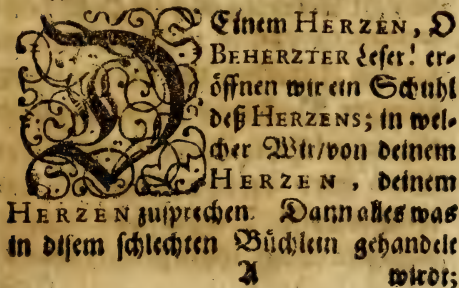 DEinem HERZEN, O
BEHERZTER Leser! er-
öffnen wir ein Schuhl
deß HERZENS; in wel-
cher Wir/von deinem
HERZEN, deinem
HERZEN zusprechen. Dann alles was
in disem schlechten Büchlein gehandele
A wirdt;